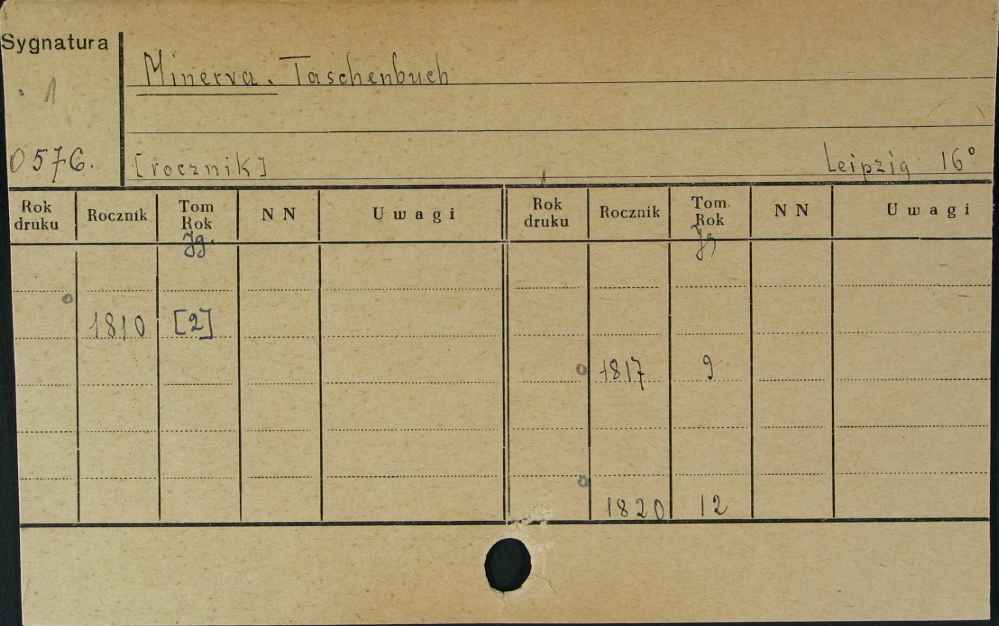 Sygnatura
Minerva. Taschenbuch
1
0576.
[rocznik] Leipzig 16°
Rok druku Rocznik Tom Rok NN Uwagi Rok druku Rocznik Tom. Rok NN Uwagi
Jg. Jg
1810 [2]
1817 9
1820 12